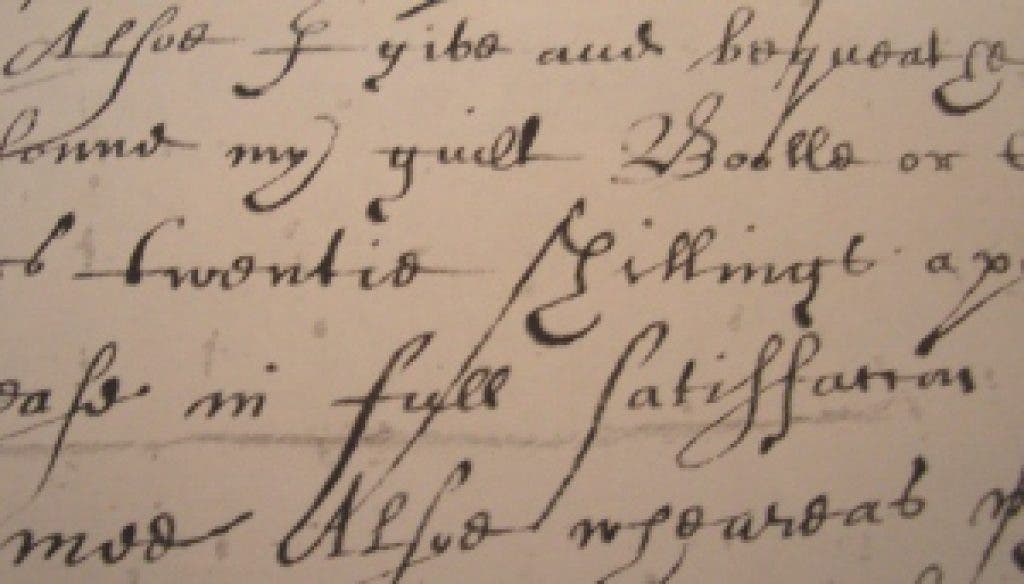 Alsoe I give and bequeathe
sonne my guilt Bowlle or
twentie shillings ap
ease in full satisfaction
mee Alsoe wheareas